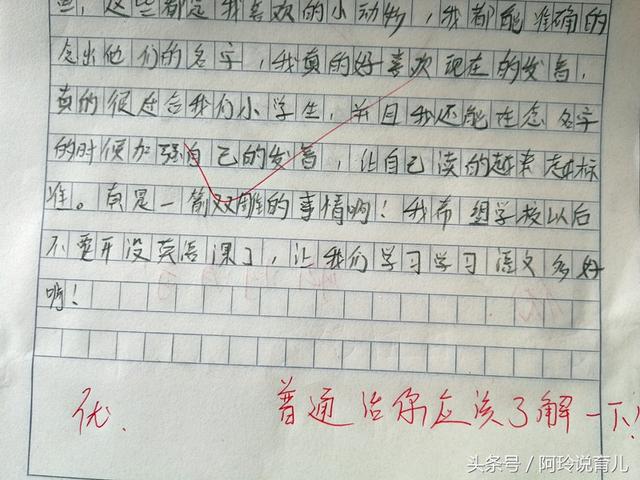 这些都是我喜欢的小动物，我都能准确的
念出他们的名字，我真的好喜欢现在的发音，
真的很适合我们小学生，并且我还能在念名字
的时候加强自己的发音，让自己读的越来越标
准。真是一箭双雕的事情啊！我希望学校以后
不要开设英语课了，让我们学习学习语文多好
啊！
优.
普通话你应该了解一下！
头条号／阿玲说育儿